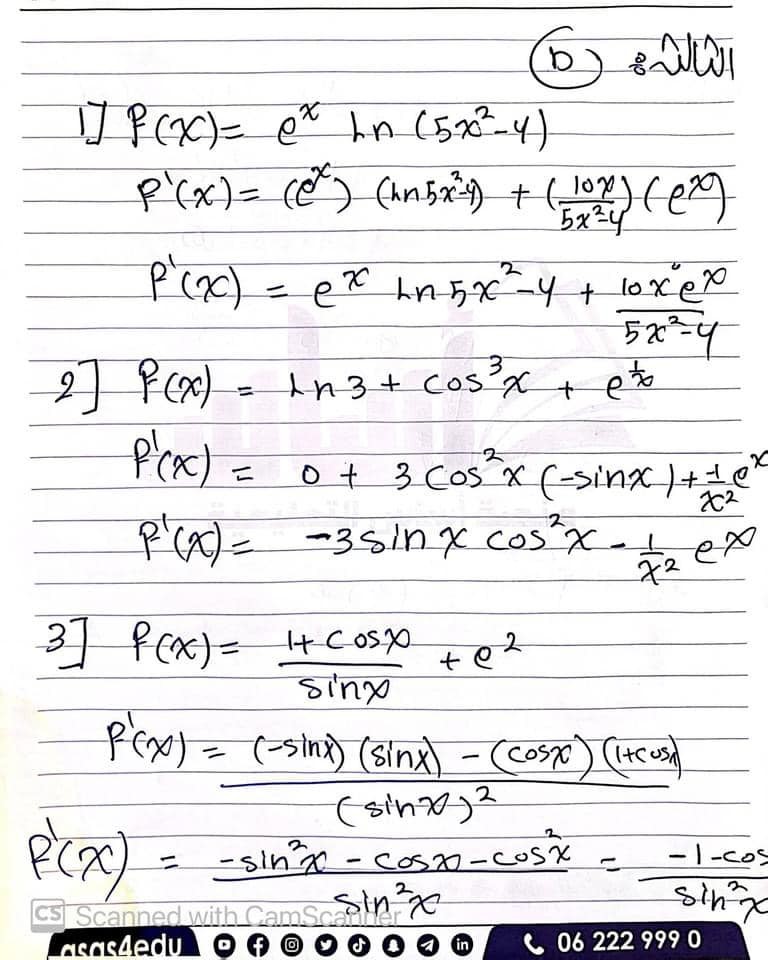 الثالثة: (b)
1] f(x) = e^x ln (5x²-4)
f'(x) = (e^x) (ln 5x²-4) + (10x/5x²-4) (e^x)
f'(x) = e^x ln 5x²-4 + 10x e^x/5x²-4
2] f(x) = ln 3 + cos³x + e^(1/x)
f'(x) = 0 + 3 cos²x (-sinx) + -1/x² e^x
f'(x) = -3 sin x cos²x - 1/x² e^x
3] f(x) = 1 + cosx/sinx + e²
f'(x) = (-sinx) (sinx) - (cosx) (1+cosx)/(sinx)²
f'(x) = -sin²x - cosx - cos²x/sin²x = -1-cos/sin²x
CS Scanned with CamScanner
asas4edu 06 222 999 0